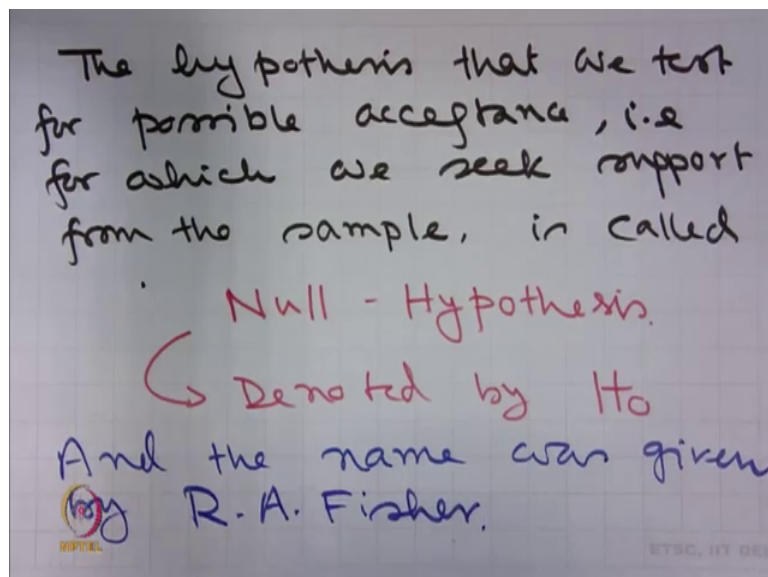 The hypothesis that we test
for possible acceptance, i.e
for which we seek support
from the sample, is called
Null - Hypothesis.
Denoted by H0
And the name was given
by R. A. Fisher.
NPTEL
ETSC, IIT DE